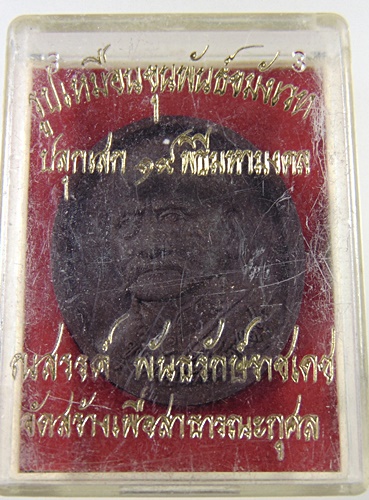 รูปเหมือนขุนพันธ์จมังเวท
ปลุกเสก ๑๙ พิธีมหามงคล
ณสรรค์ พันธรักษ์ราชเดช
จัดสร้างเพื่อสาธารณะกุศล